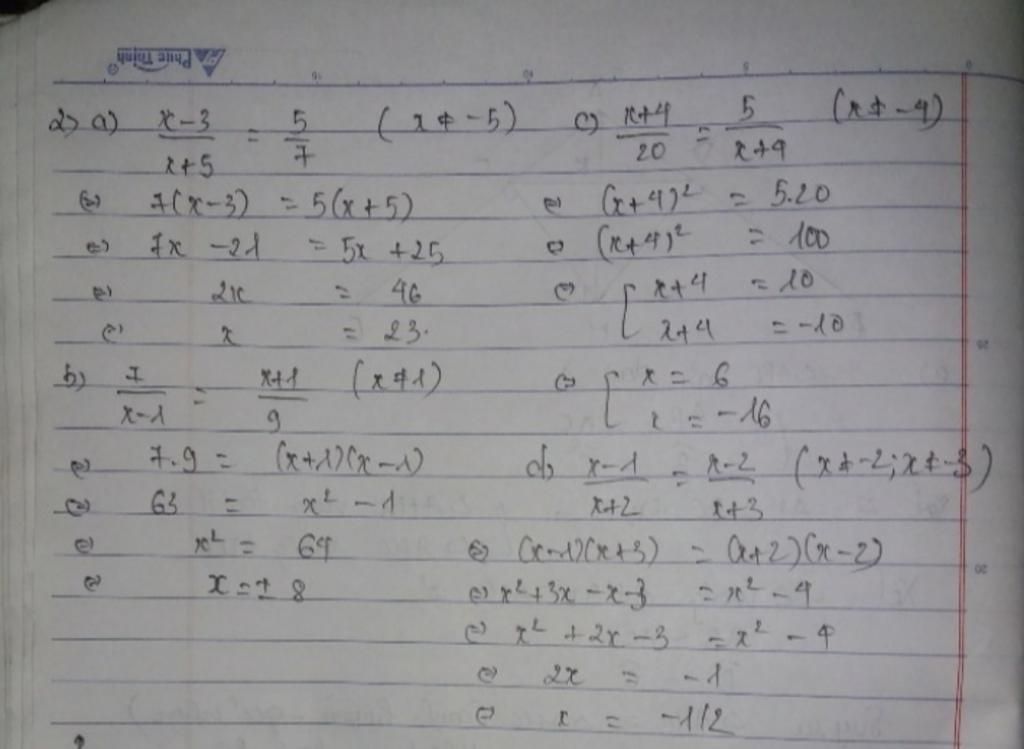 Phúc Thịnh
2) a) (x-3)/(x+5) = 5/7 (x ≠ -5)
⇔ 7(x-3) = 5(x+5)
⇔ 7x - 21 = 5x + 25
⇔ 2x = 46
⇔ x = 23.
b) 7/(x-1) = (x+1)/9 (x ≠ 1)
⇔ 7.9 = (x+1)(x-1)
⇔ 63 = x² - 1
⇔ x² = 64
⇔ x = ± 8
c) (x+4)/20 = 5/(x+4) (x ≠ -4)
⇔ (x+4)² = 5.20
⇔ (x+4)² = 100
⇔ [ x+4 = 10
x+4 = -10
⇔ [ x = 6
x = -16
d) (x-1)/(x+2) = (x-2)/(x+3) (x ≠ -2; x ≠ -3)
⇔ (x-1)(x+3) = (x+2)(x-2)
⇔ x² + 3x - x - 3 = x² - 4
⇔ x² + 2x - 3 = x² - 4
⇔ 2x = -1
⇔ x = -1/2